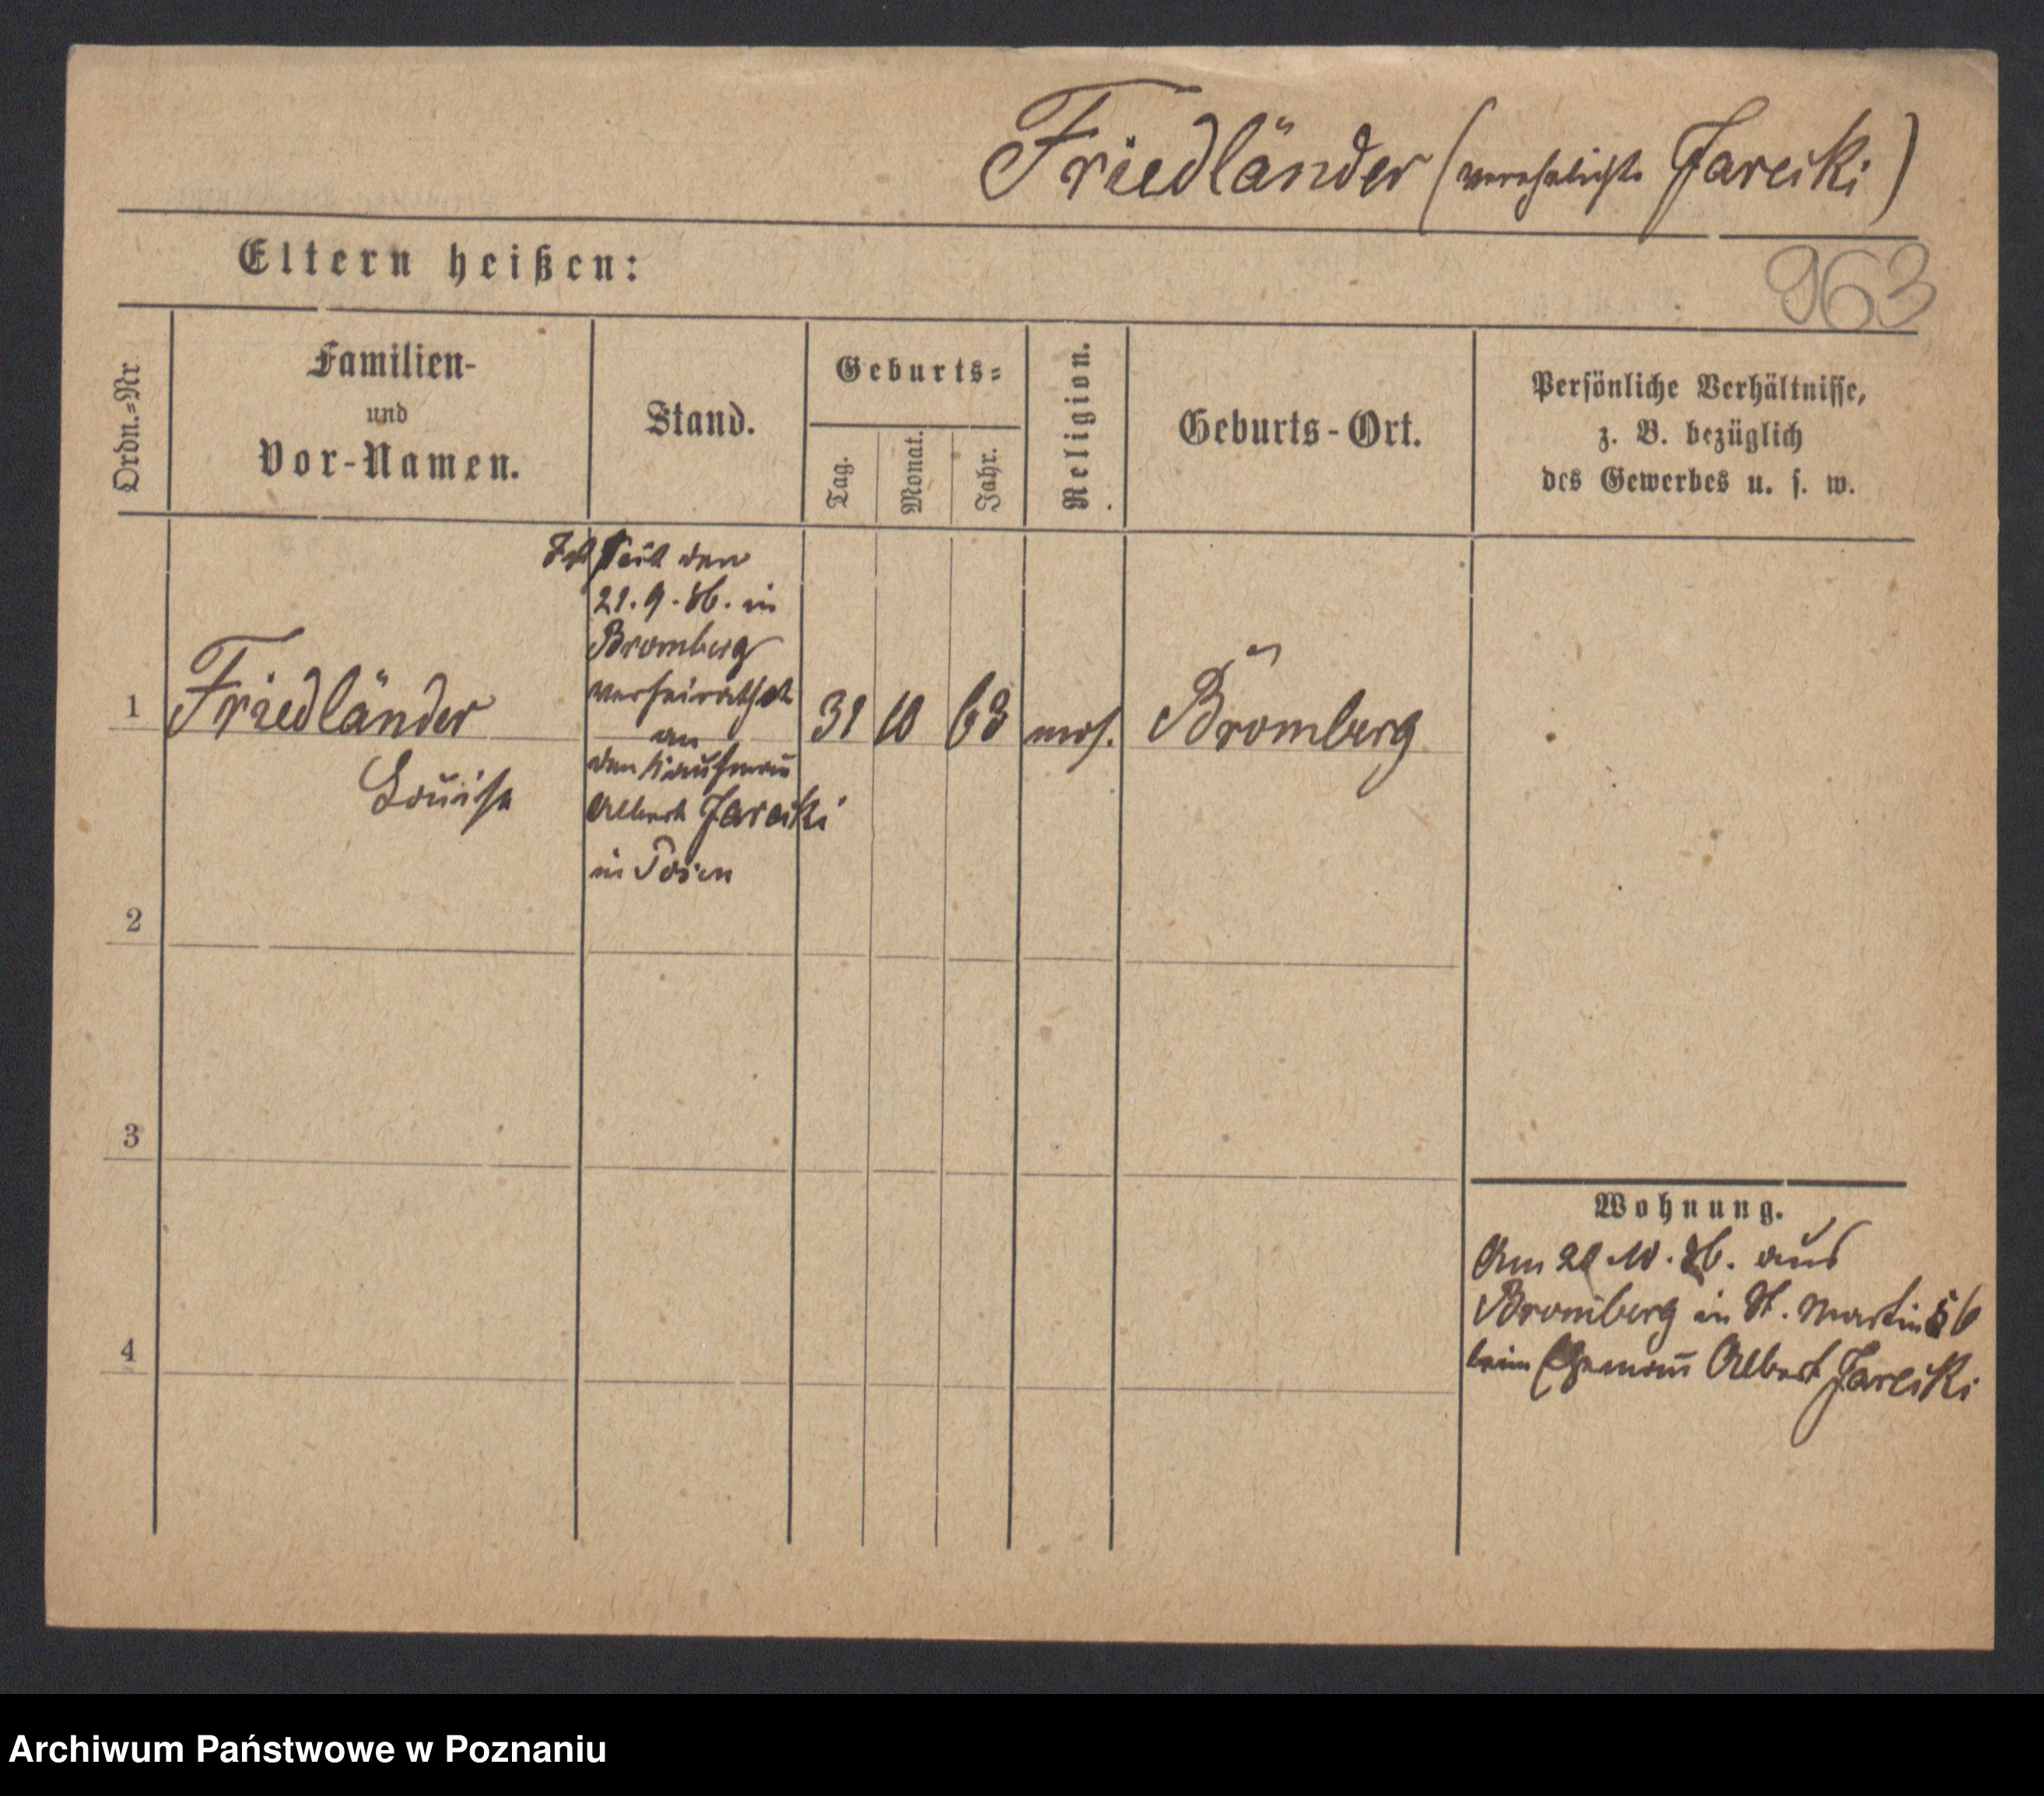 Friedländer (verehelichte Jarecki)
Eltern heißen:
963
Ordn.-Nr
Familien-
und
Vor-Namen.
Stand.
Geburts-
Tag.
Monat.
Jahr.
Religion.
Geburts-Ort.
Persönliche Verhältnisse,
z. B. bezüglich
des Gewerbes u. s. w.
Ist seit den
21.9.86. in
Bromberg
verheirathet
an
den Kaufmañ
Albert Jarecki
in Posen
1
Friedländer
Louise
31
10
63
mos.
Bromberg
2
3
4
Wohnung.
Am 21.10.86. aus
Bromberg in St. Martin 56
beim Ehemañ Albert Jarecki
Archiwum Państwowe w Poznaniu